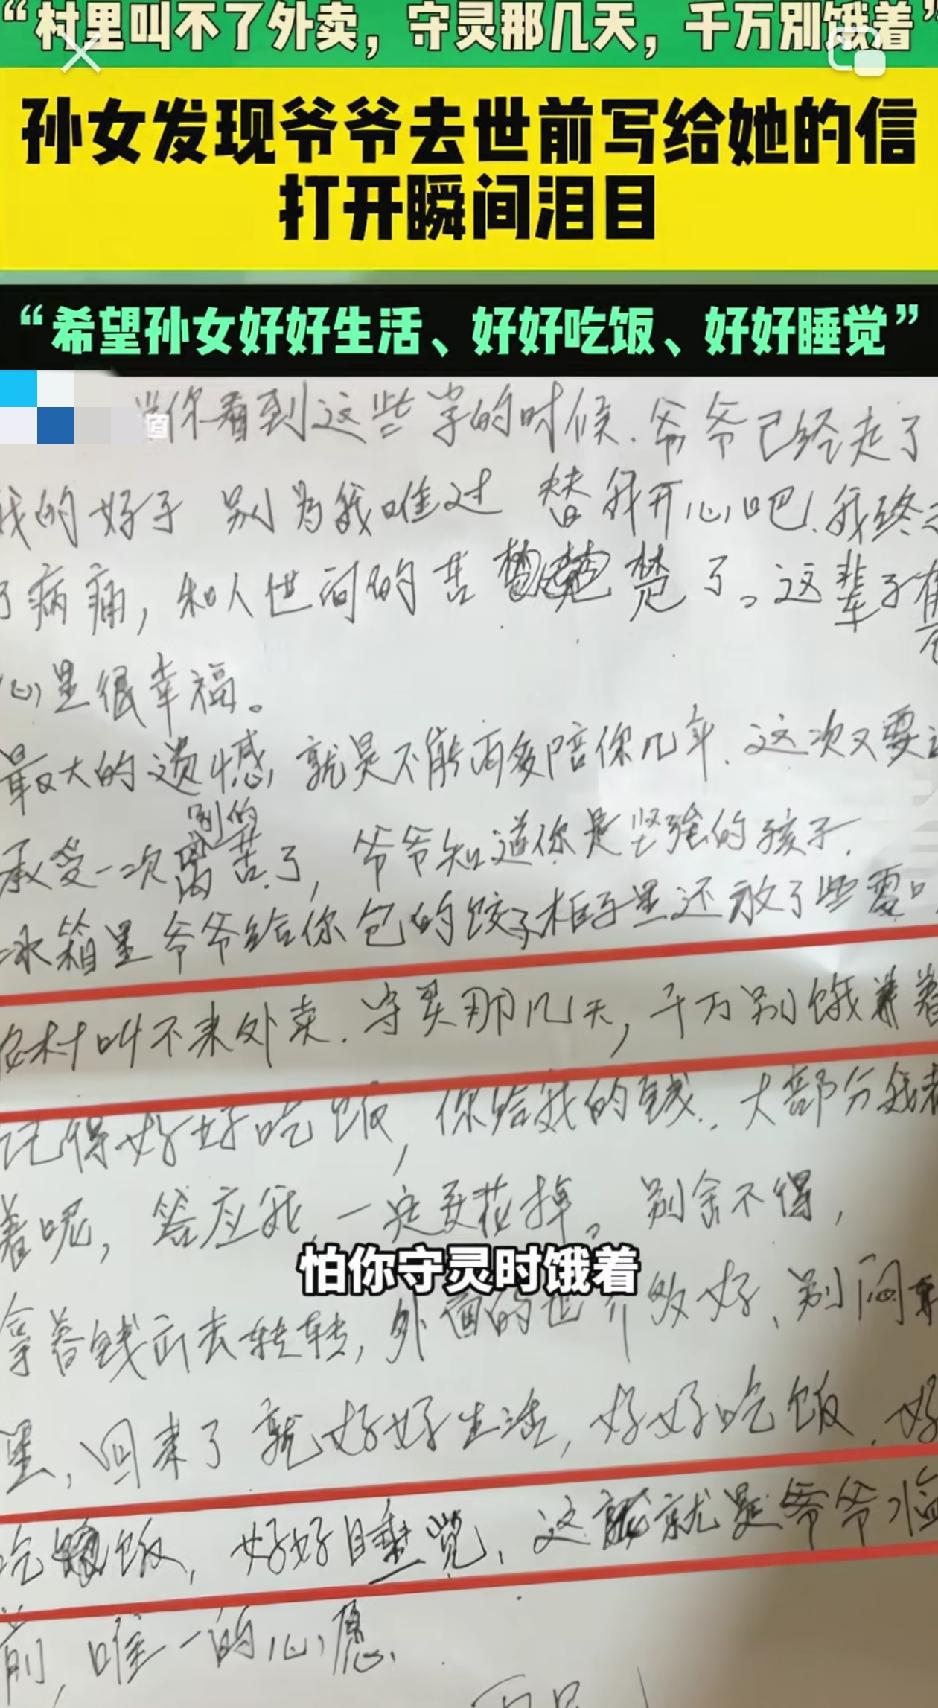 “村里叫不了外卖，守灵那几天，千万别饿着”
孙女发现爷爷去世前写给她的信
打开瞬间泪目
“希望孙女好好生活、好好吃饭、好好睡觉”
当你看到这些字的时候.爷爷已经走了
我的好子 别为我难过 替我开心吧!我终
了病痛，和人世间的苦 楚了。这辈子有
心里很幸福。
最大的遗憾,就是不能再多陪你几年.这次又要
别的
承受一次离苦了，爷爷知道你是坚强的孩子.
冰箱里爷爷给你包的饺子柜子里还放了些零
村叫不来外卖.守灵那几天，千万别饿着
记得好好吃饭，你给我的钱.大部分我
着呢，答应我,一定要花掉。别舍不得，
怕你守灵时饿着
拿着钱出去转转，外面的世界多好、别闷
里，回来了就好好生活，好好吃饭.好
吃饭，好好睡觉、这就是爷爷临
前,唯一的心愿.